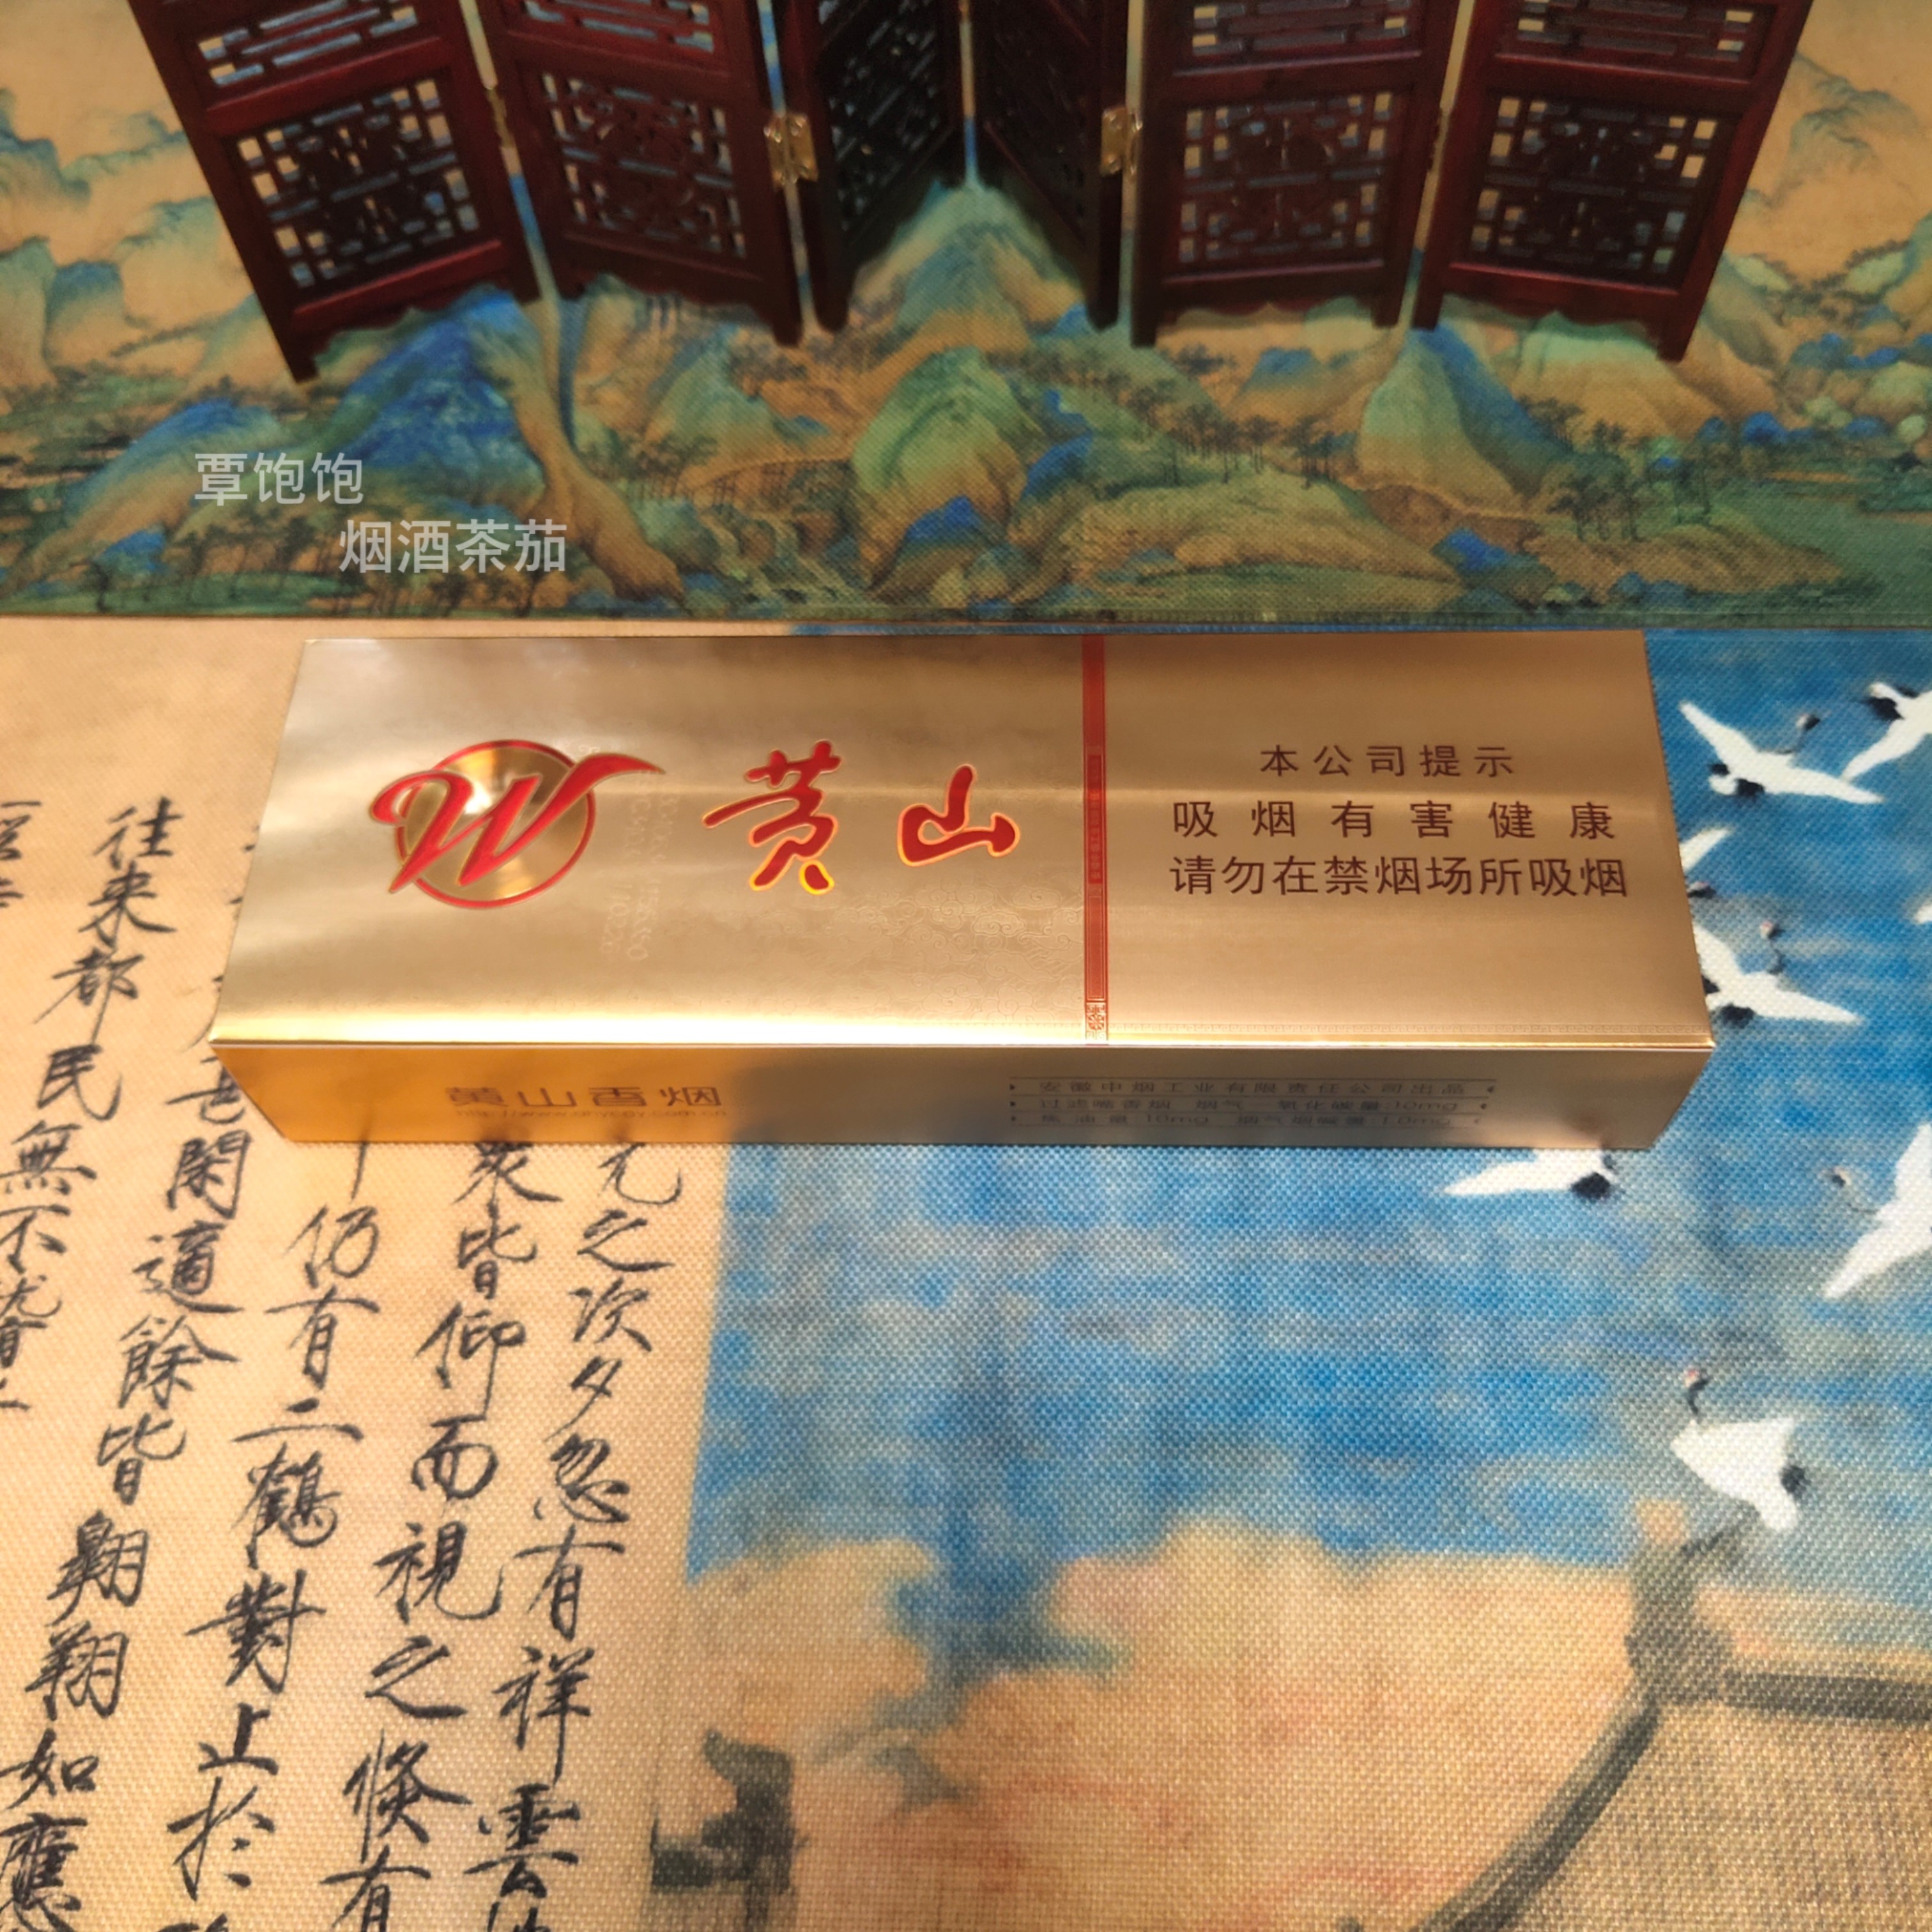 覃饱饱
烟酒茶茄
黄山
本公司提示
吸烟有害健康
请勿在禁烟场所吸烟
黄山香烟
安徽中烟工业有限责任公司出品
过滤嘴香烟 烟气一氧化碳量:10mg
焦油量:10mg 烟气烟碱量:1.0mg
元之次夕忽有祥雲
衆皆仰而視之倏有
仍有二鶴對止於
甚閑適餘皆翱翔如應
往来都民無不